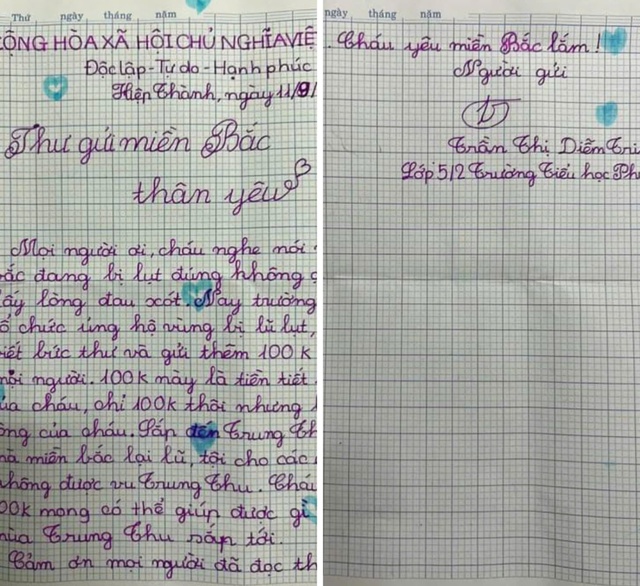 Thứ ngày tháng năm
CỘNG HÒA XÃ HỘI CHỦ NGHĨA VIỆ
Độc lập-Tự do-Hạnh phúc
Hiệp Thành, ngày 11/9/
Thư gửi miền Bắc
thân yêu
Mọi người ơi, cháu nghe nói
Bắc đang bị lụt đúng không ạ
lòng đau xót. Nay trường
chức ủng hộ vùng bị lũ lụt,
viết bức thư và gửi thêm 100k
người. 100k này là tiền tiết
của cháu, chỉ 100k thôi nhưng
của cháu. Sắp đến Trung Th
mà miền bắc lại lũ, tội cho các
không được vu Trung Thu. Cháu
100k mong có thể giúp được gì
mùa Trung Thu sắp tới.
Cảm ơn mọi người đã đọc th
ngày tháng năm
Cháu yêu miền Bắc lắm!
Người gửi
Trần Thị Diễm Tri
Lớp 5/2 Trường Tiểu học Ph